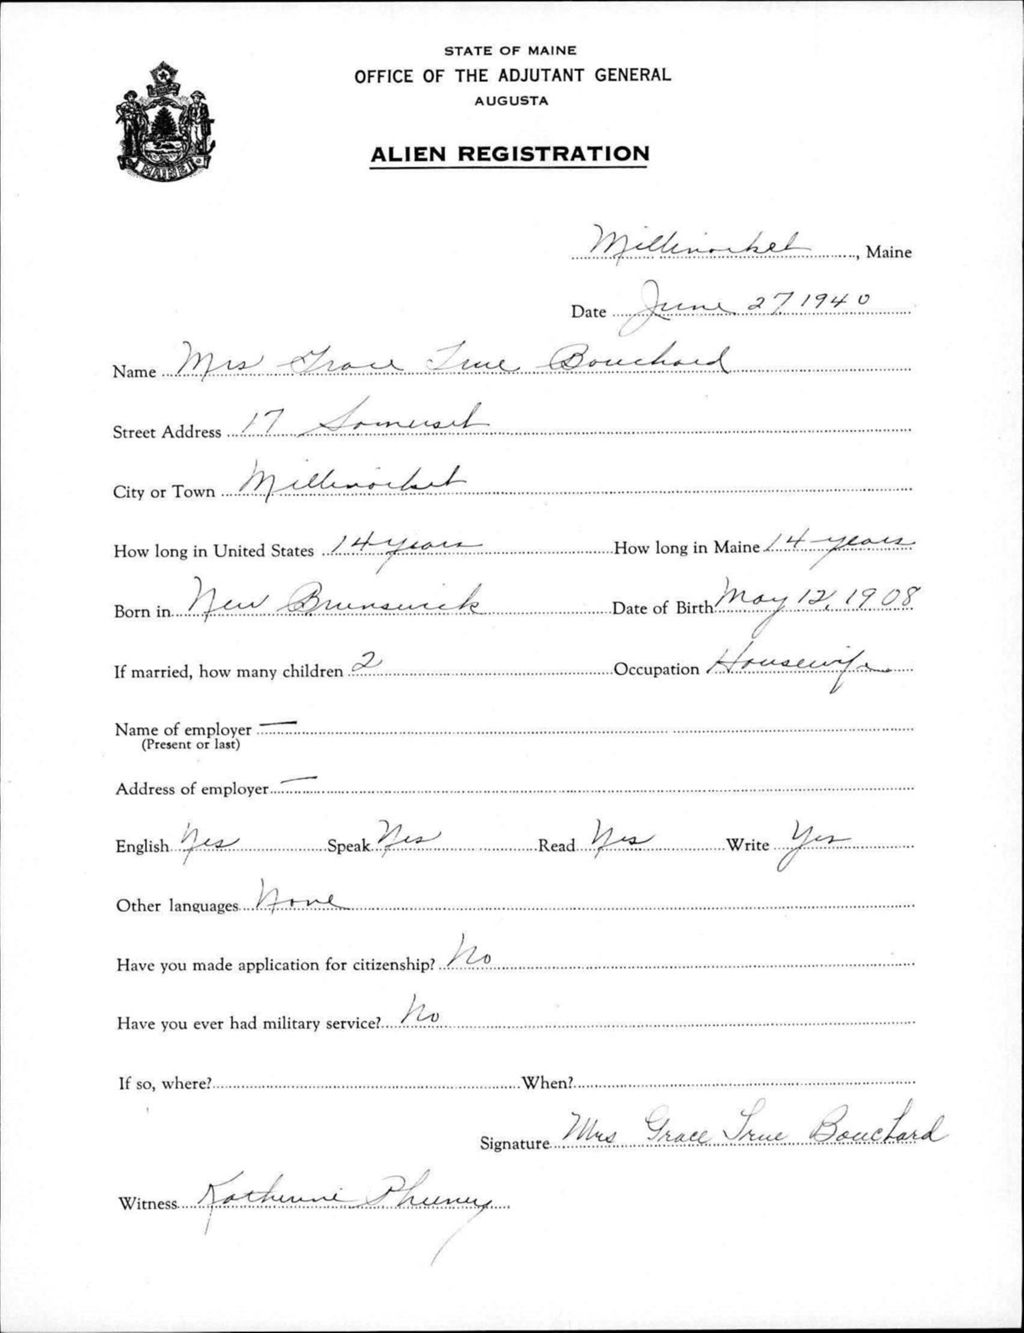 STATE OF MAINE
OFFICE OF THE ADJUTANT GENERAL
AUGUSTA
ALIEN REGISTRATION
MAINE
Millinocket, Maine
Date June 27, 1940
Name Mrs Grace True Bouchard
Street Address 17 Somerset
City or Town Millinocket
How long in United States 14 years How long in Maine 14 years
Born in New Brunswick Date of Birth May 12, 1908
If married, how many children 2 Occupation Housewife
Name of employer —
(Present or last)
Address of employer —
English Yes Speak Yes Read Yes Write Yes
Other languages None
Have you made application for citizenship? No
Have you ever had military service? No
If so, where? When?
Signature Mrs Grace True Bouchard
Witness Katherine Pheeney